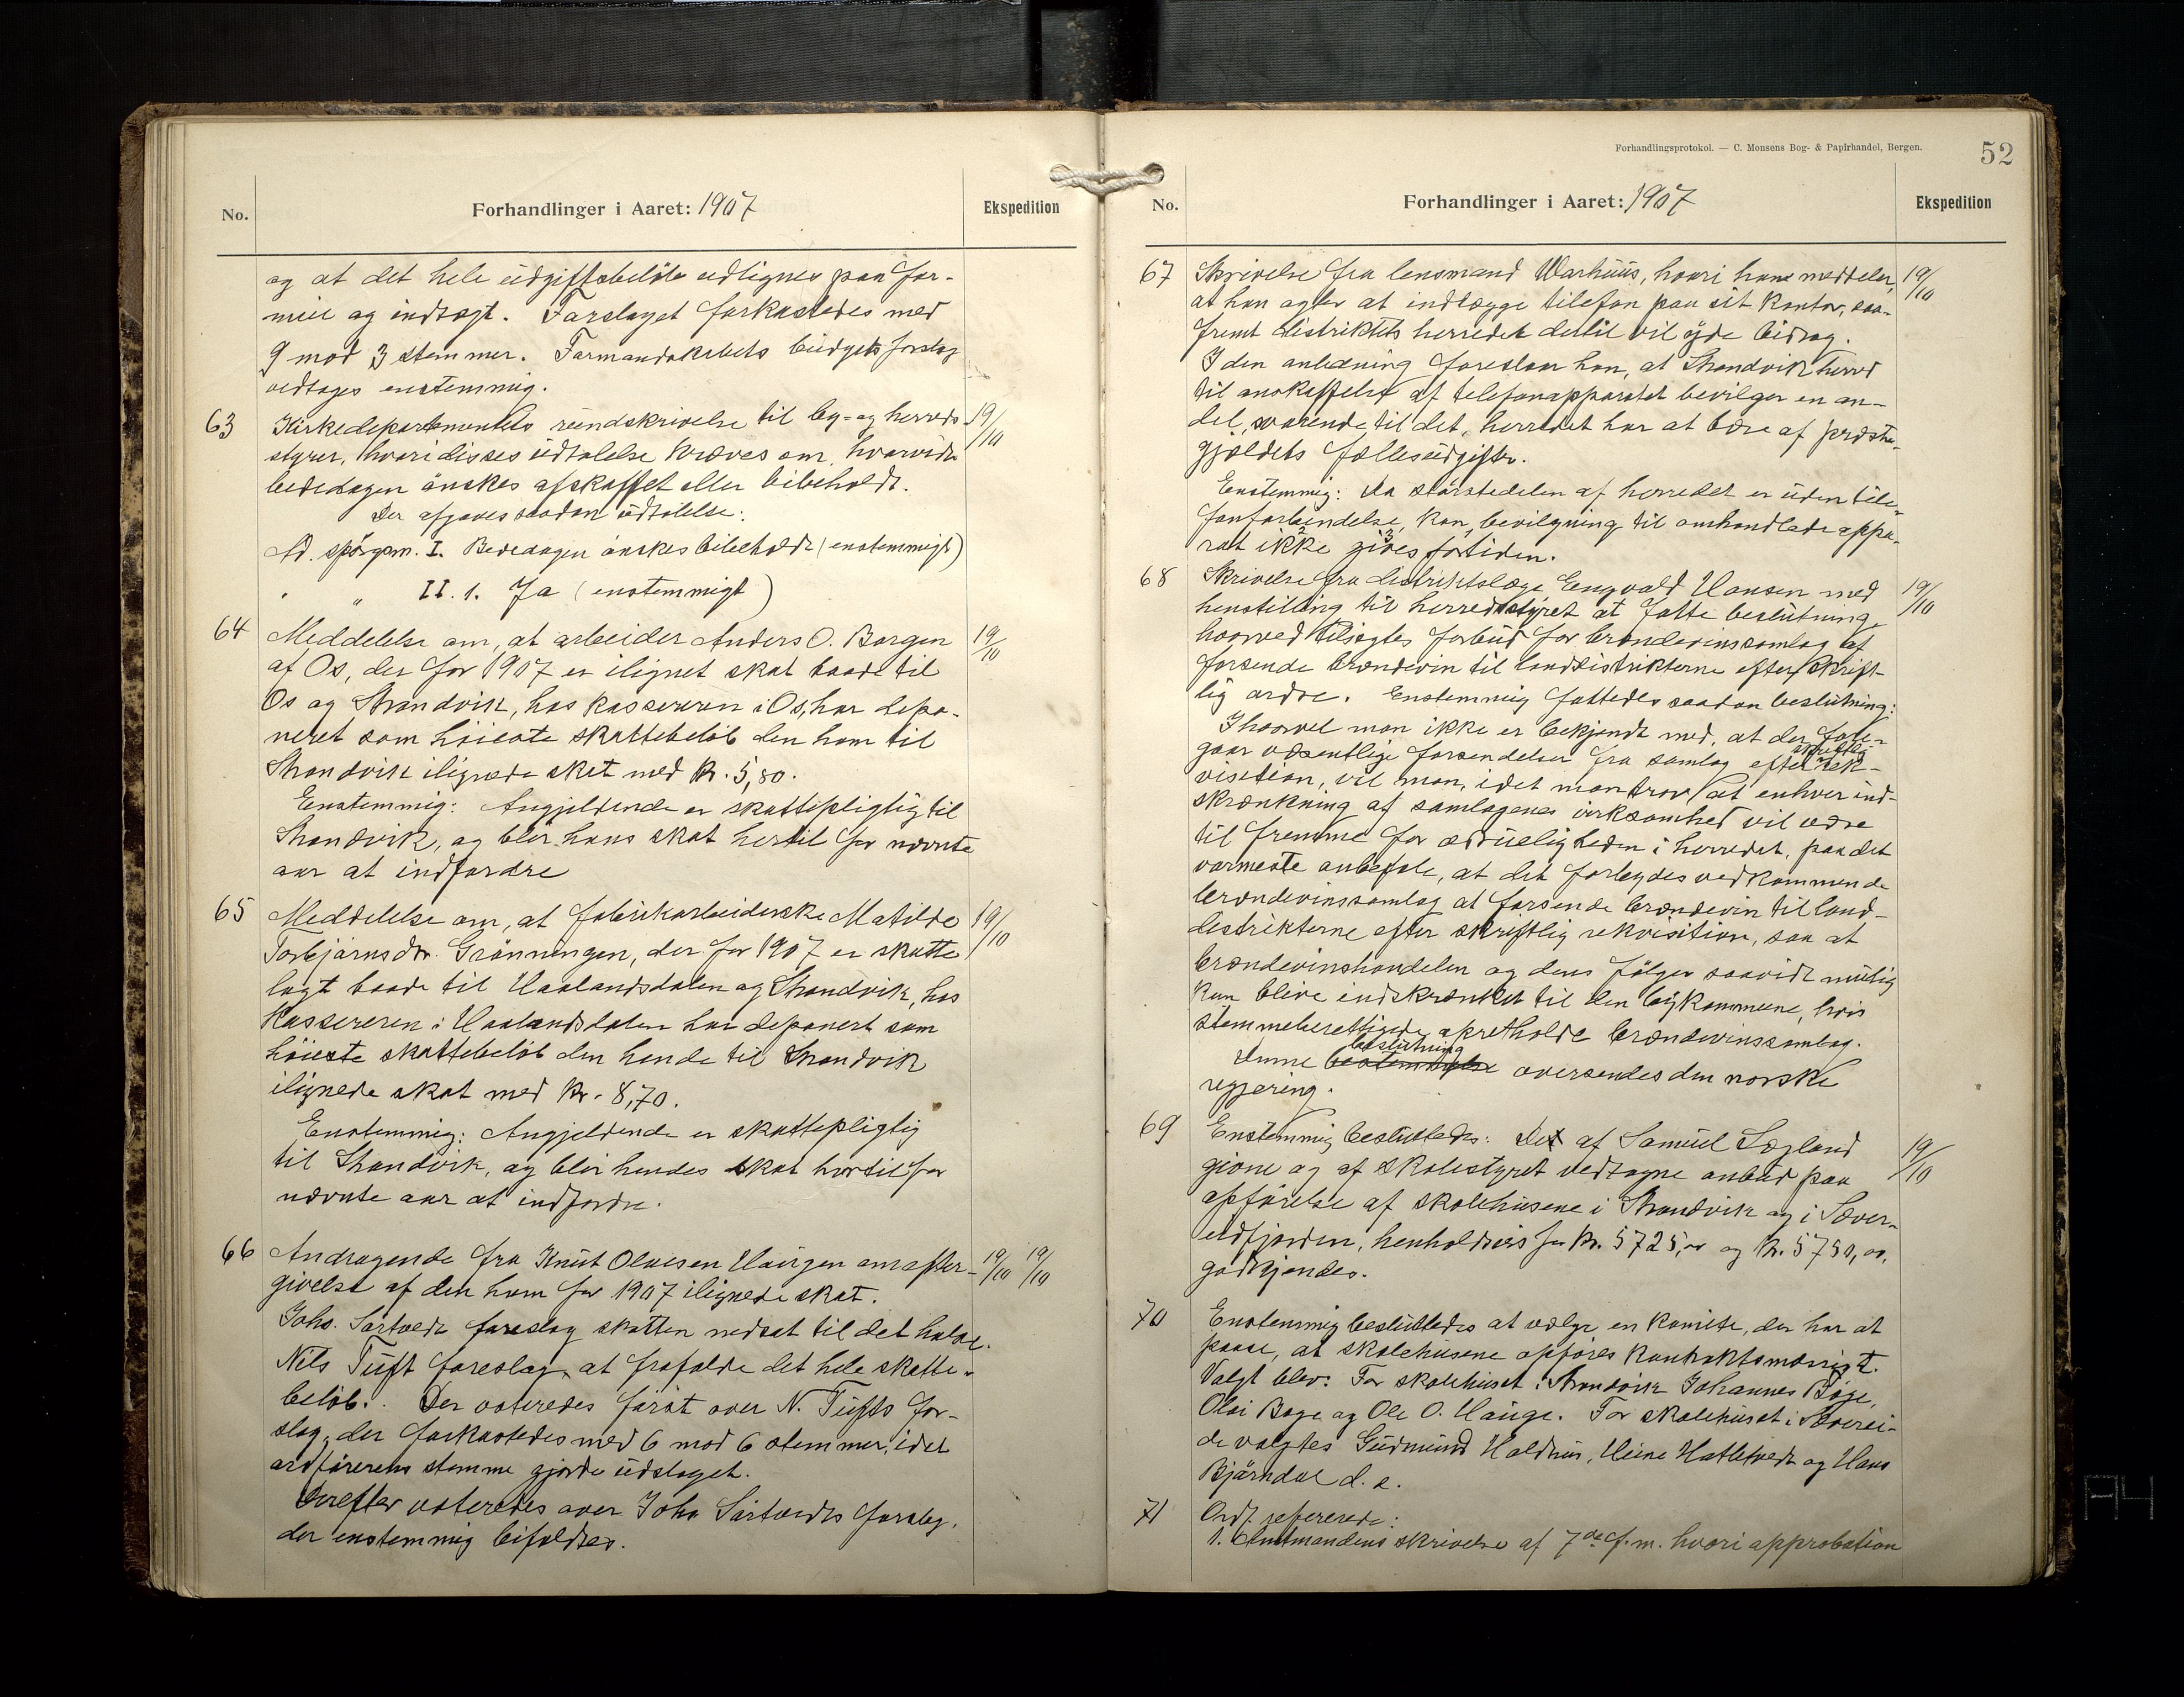 No.
Forhandlinger i Aaret: 1907
Ekspedition
og at det hele udgiftsbeløb udlignes paa for-
mue og indtægt. Forslaget forkastedes med
9 mod 3 stemmer. Formandskabets budgetsforslag
vedtages enstemmig.
63 Kirkedepartementets rundskrivelse til by- og herreds- 19/10
styrer, hvori disses udtalelse kræves om, hvorvidt
bededagen ønskes afskaffet eller bibeholdt.
Der afgaves saadan udtalelse:
Ad. spørgsm. I. Bededagen ønskes bibeholdt (enstemmigt)
" " II. 1. Ja (enstemmigt)
64 Meddelelse om, at arbeider Anders O. Borgen 19/10
af Os, der for 1907 er ilignet skat baade til
Os og Strandvik, hos kassereren i Os, har depo-
neret som høieste skattebeløb den ham til
Strandvik ilignede skat med kr. 5,80.
Enstemmig: Angjeldende er skattepligtig til
Strandvik, og blir hans skat hertil for nævnte
aar at indfordre
65 Meddelelse om, at fabrikarbeiderske Matilde 19/10
Torbjørnsdtr. Grønningen, der for 1907 er skatte
lagt baade til Haalandsdalen og Strandvik, hos
Kassereren i Haalandsdalen har deponert som
høieste skattebeløb den hende til Strandvik
ilignede skat med kr. 8,70.
Enstemmig: Angjeldende er skattepligtig
til Strandvik, og blir hendes skat hertil for
nævnte aar at indfordre.
66 Andragende fra Knut Olaesen Haugen om efter- 19/10 19/10
givelse af den ham for 1907 ilignede skat.
Johs. Sørtvedt foreslog skatten nedsat til det halve.
Nils Tuft foreslog at frafalde det hele skatte-
beløb. Der voteredes først over N. Tufts for-
slag, der forkastedes med 6 mod 6 stemmer, idet
ordførerens stemme gjorde udslaget.
Derefter voteredes over Johs Sørtvedts forslag,
der enstemmig bifaldtes.
Forhandlingsprotokol. — C. Monsens Bog- & Papirhandel, Bergen.
52
No.
Forhandlinger i Aaret: 1907
Ekspedition
67 Skrivelse fra lensmand Warhuus, hvori hans meddeler, 19/10
at han agter at indlægge telefon paa sit kontor, saa-
fremt distriktets herreder dertil vil yde bidrag.
I den anledning foreslaar han, at Strandvik herred
til anskaffelse af telefonapparatet bevilger en an-
del, svarende til det, herredet har at bære af præste-
gjældets fællesudgifter.
Enstemmig: Da størstedelen af herredet er uden tele-
fonforbindelse, kan bevilgning til omhandlede appa-
rat ikke gives fortiden.
68 Skrivelse fra distriktslæge Engvald Hansen med 19/10
henstilling til herredsstyret at fatte beslutning,
hvorved tilsigtes forbud for brændevinssamlag af
forsende brændevin til landdistrikterne efter skrift-
lig ordre. Enstemmig fattedes saadan beslutning:
Ihvorvel man ikke er bekjendt med, at der fore-
gaar væsentlige forsendelser fra samlag efter skriftlig rek-
visition, vil man, idet man tror, at enhver ind-
skrænkning af samlagenes virksomhed vil være
til fremme for ædrueligheden i herredet, paa det
varmeste anbefale, at det forbydes vedkommende
brændevinssamlag at forsende brændevin til land-
distrikterne efter skriftlig rekvisition, saa at
brændevinshandelen og dens følger saavidt mulig
kan blive indskrænket til den bykommune, hvis
stemmeberettigede opretholde brændevinssamlag.
Denne beslutning oversendes den norske
regjering.
69 Enstemmig besluttedes: Det af Samuel Sægland 19/10
givne og af skolestyret vedtagne anbud paa
opførelse af skolehusene i Strandvik og i Sæver-
eidfjorden, henholdsvis for kr. 5725,00 og kr. 5750,00,
godkjendes.
70 Enstemmig besluttedes at vælge en komite, der har at
paase, at skolehusene opføres kontraktsmæssigt.
Valgt blev: For skolehuset i Strandvik Johannes Bøge,
Olai Bøge og Ole O. Hauge. For skolehuset i Sæverei-
de valgtes Gudmund Haldhus, Heine Hatletvedt og Hans
Bjørndal d. e.
71 Ordf. refererede:
1. Amtmandens skrivelse af 7de f. m. hvori approbation